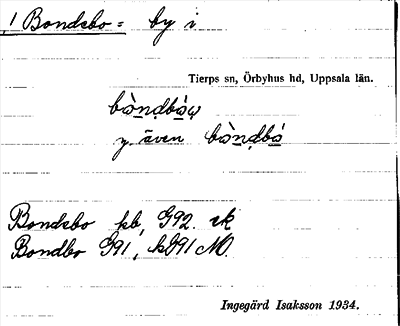 1 Bondebo = by i
Tierps sn, Örbyhus hd, Uppsala län.
bòndbòų
y. även bòndbò
Bondebo kb, G92. ek
Bondbo G91, kG91 M.
Ingegärd Isaksson 1934.